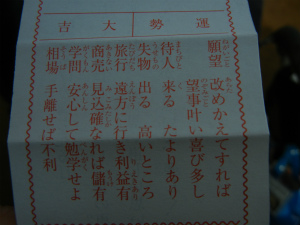 運勢 大吉
願望 改めかえてすれば
望事叶い喜び多し
待人 来る たよりあり
失物 出る 高いところ
旅行 遠方に行き利益有
商売 見込確なれば儲有
学問 安心して勉学せよ
相場 手離せば不利